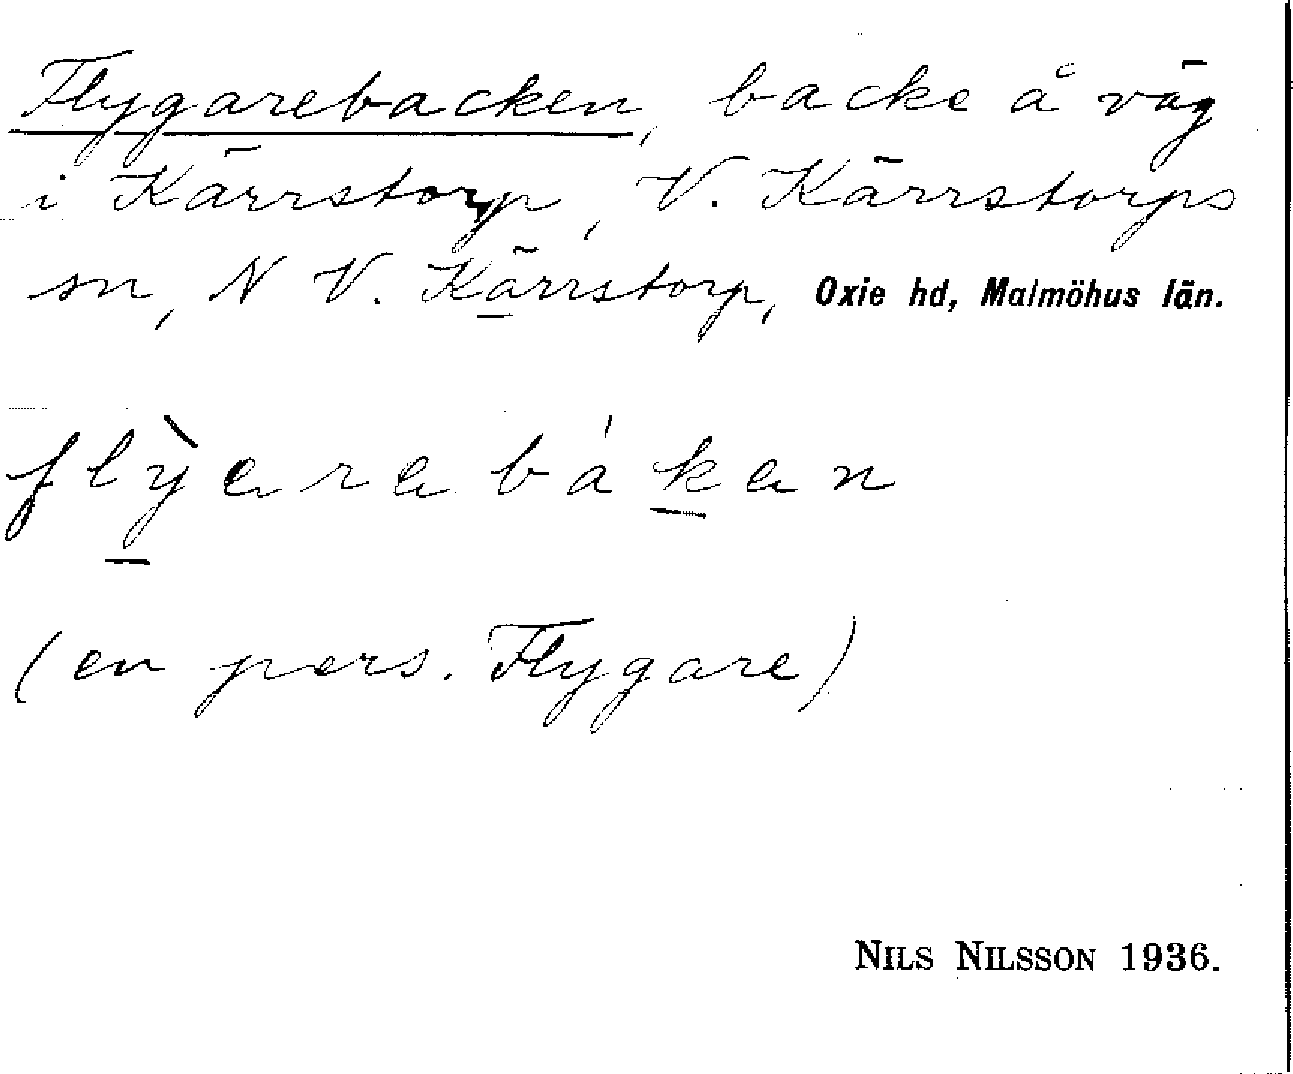 Flygarebacken, backe å väg
i Kärrstorp, V. Kärrstorps
sn, N V. Kärrstorp, Oxie hd, Malmöhus län.
flỳarabákan
(en pers. Flygare)
NILS NILSSON 1936.